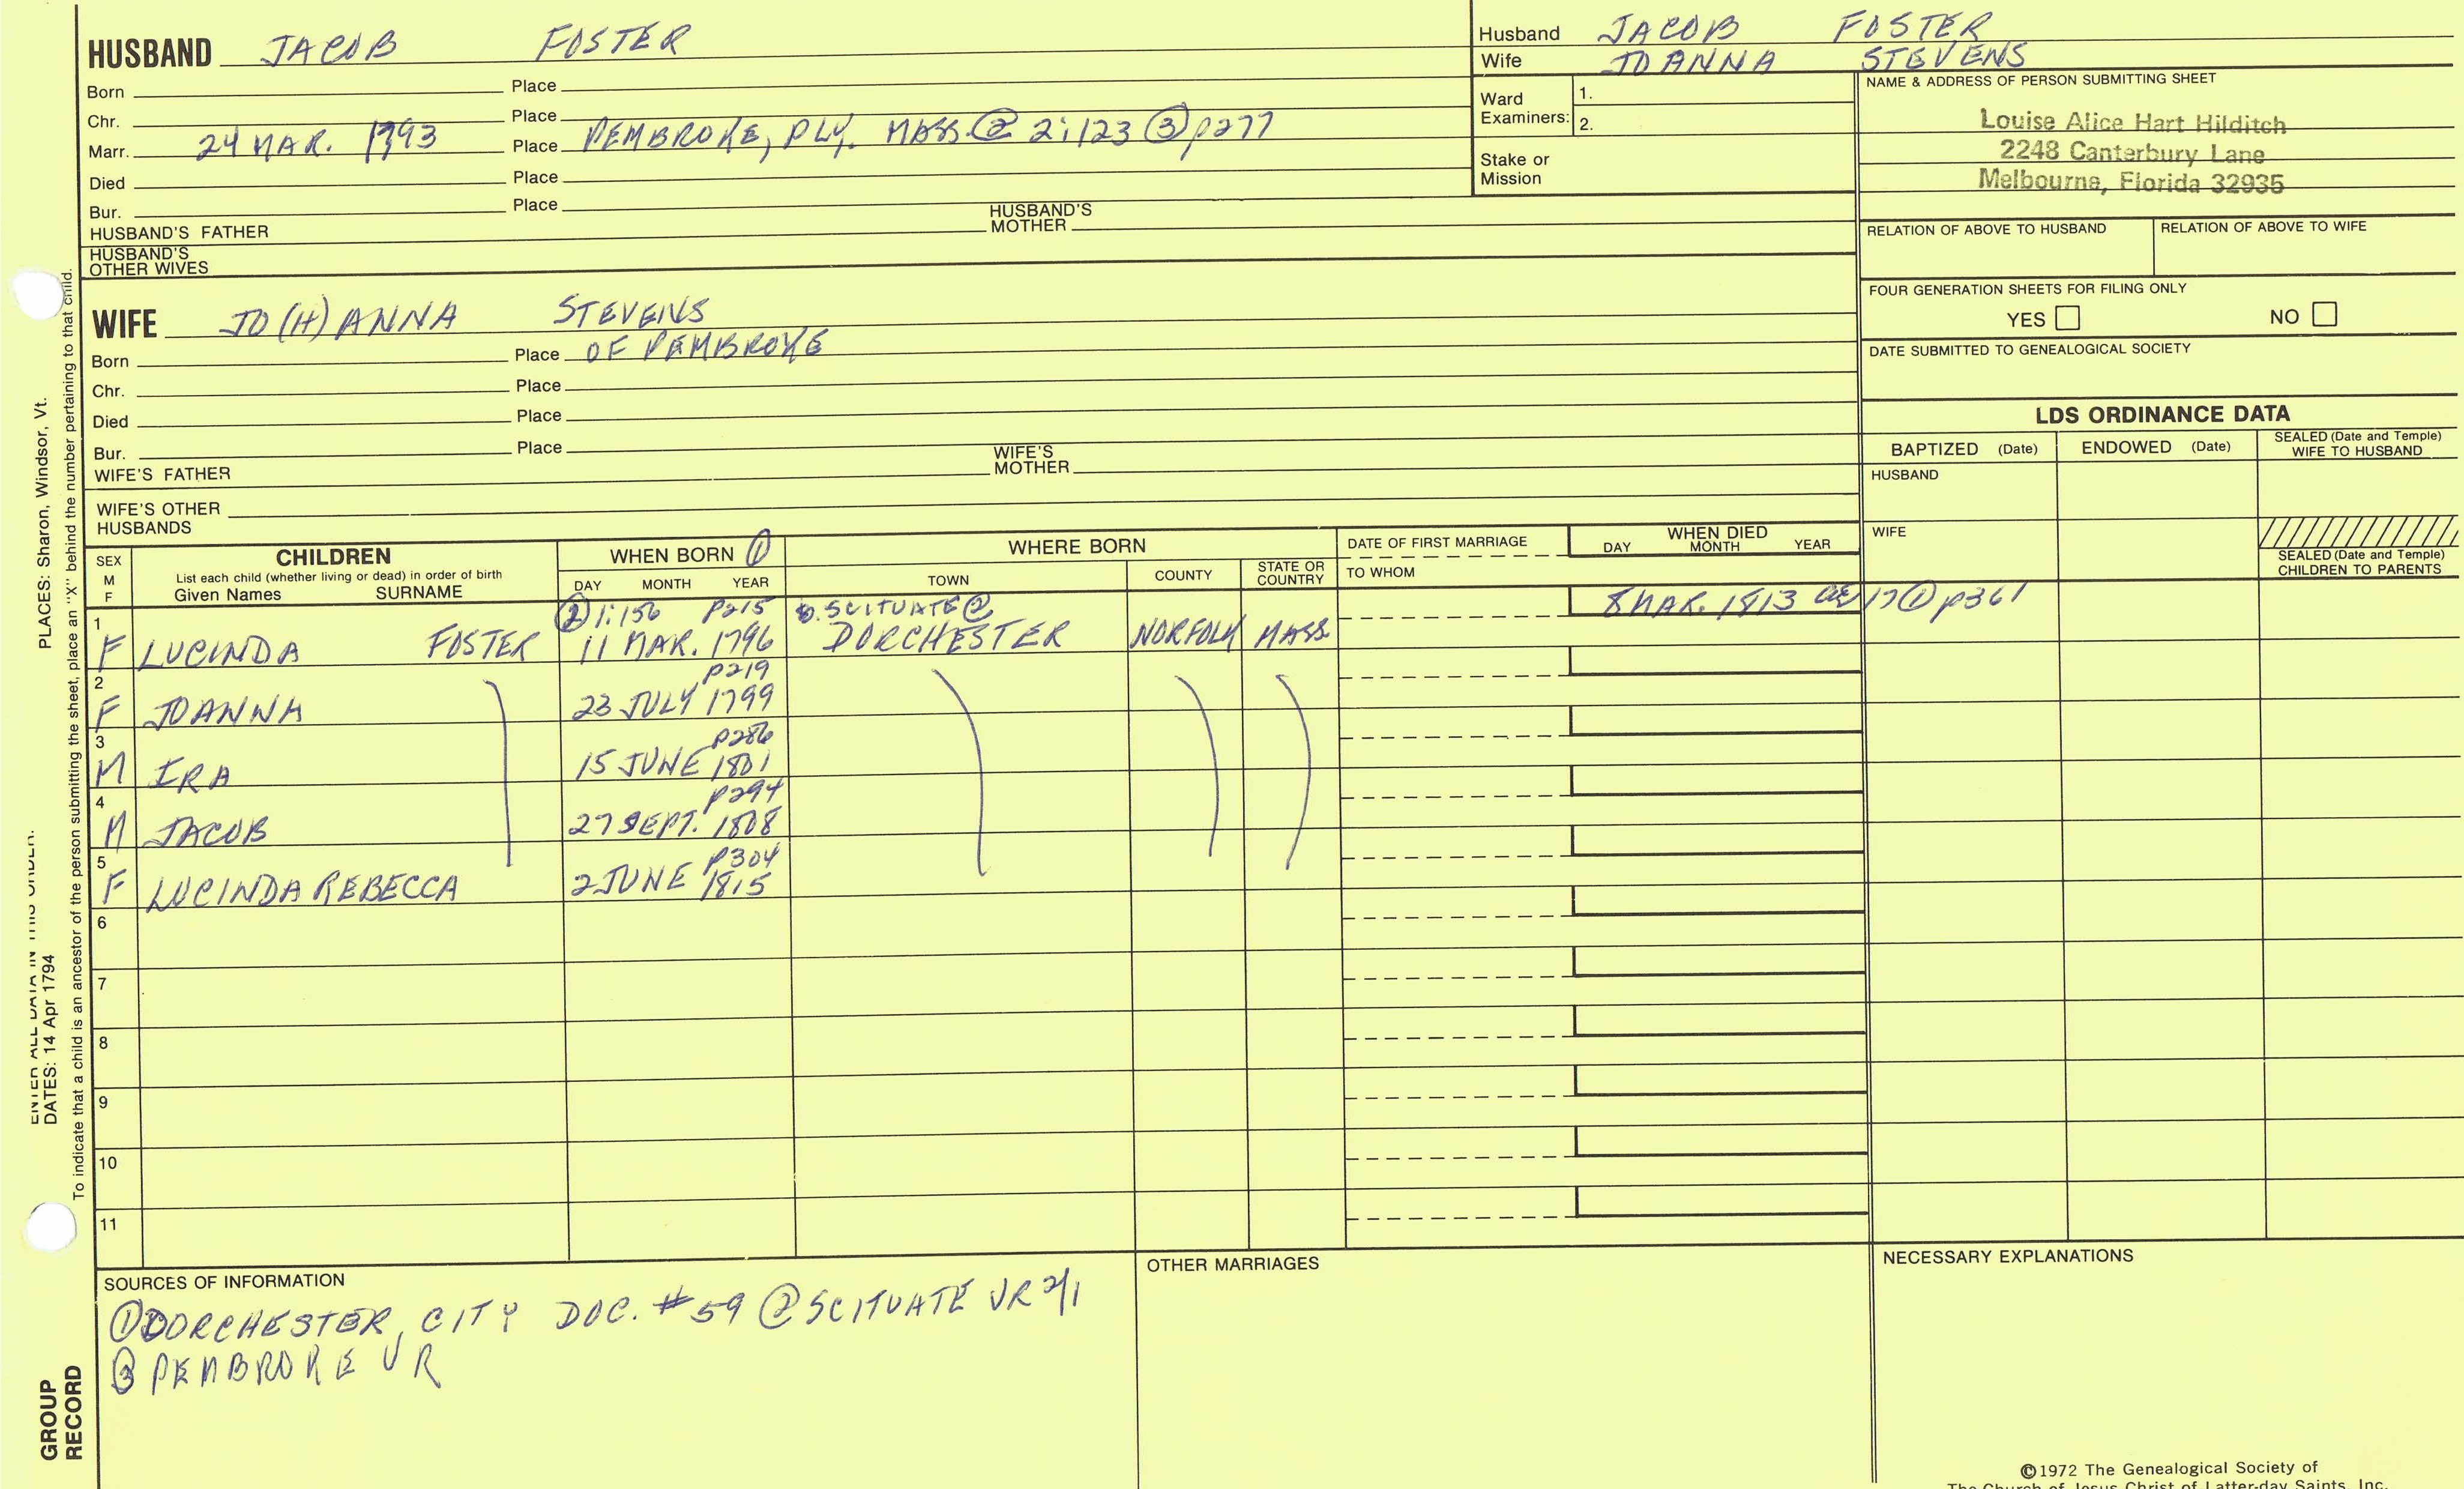 HUSBAND JACOB FOSTER
Born Place
Chr. Place
Marr. 24 MAR. 1793 Place PEMBROKE, PLY. MASS. ② 2:123 ③ p277
Died Place
Bur. Place
HUSBAND'S FATHER HUSBAND'S MOTHER
HUSBAND'S OTHER WIVES
Husband JACOB FOSTER
Wife JOANNA STEVENS
Ward Examiners: 1.
2.
Stake or Mission
NAME & ADDRESS OF PERSON SUBMITTING SHEET
Louise Alice Hart Hilditch
2248 Canterbury Lane
Melbourne, Florida 32935
RELATION OF ABOVE TO HUSBAND RELATION OF ABOVE TO WIFE
FOUR GENERATION SHEETS FOR FILING ONLY
YES NO
DATE SUBMITTED TO GENEALOGICAL SOCIETY
WIFE JO(H)ANNA STEVENS
Born Place OF PEMBROKE
Chr. Place
Died Place
Bur. Place
WIFE'S FATHER WIFE'S MOTHER
WIFE'S OTHER HUSBANDS
LDS ORDINANCE DATA
BAPTIZED (Date) ENDOWED (Date) SEALED (Date and Temple) WIFE TO HUSBAND
HUSBAND
WIFE
SEALED (Date and Temple) CHILDREN TO PARENTS
SEX M F
CHILDREN
List each child (whether living or dead) in order of birth
Given Names SURNAME
WHEN BORN ①
DAY MONTH YEAR
WHERE BORN
TOWN COUNTY STATE OR COUNTRY
DATE OF FIRST MARRIAGE
TO WHOM
WHEN DIED
DAY MONTH YEAR
② 1:156 p215 b. SCITUATE ② 8 MAR. 1813 AE 17 ① p361
1 F LUCINDA FOSTER 11 MAR. 1796 DORCHESTER NORFOLK MASS.
p219
2 F JOANNA 23 JULY 1799
p286
3 M IRA 15 JUNE 1801
p294
4 M JACOB 27 SEPT. 1808
p304
5 F LUCINDA REBECCA 2 JUNE 1815
6
7
8
9
10
11
SOURCES OF INFORMATION
① DORCHESTER, CITY DOC. #59 ② SCITUATE VR 2/1
③ PEMBROKE VR
OTHER MARRIAGES
NECESSARY EXPLANATIONS
©1972 The Genealogical Society of
The Church of Jesus Christ of Latter-day Saints, Inc.
ENTER ALL DATA IN THIS ORDER:
DATES: 14 Apr 1794 PLACES: Sharon, Windsor, Vt.
To indicate that a child is an ancestor of the person submitting the sheet, place an "X" behind the number pertaining to that child.
GROUP
RECORD